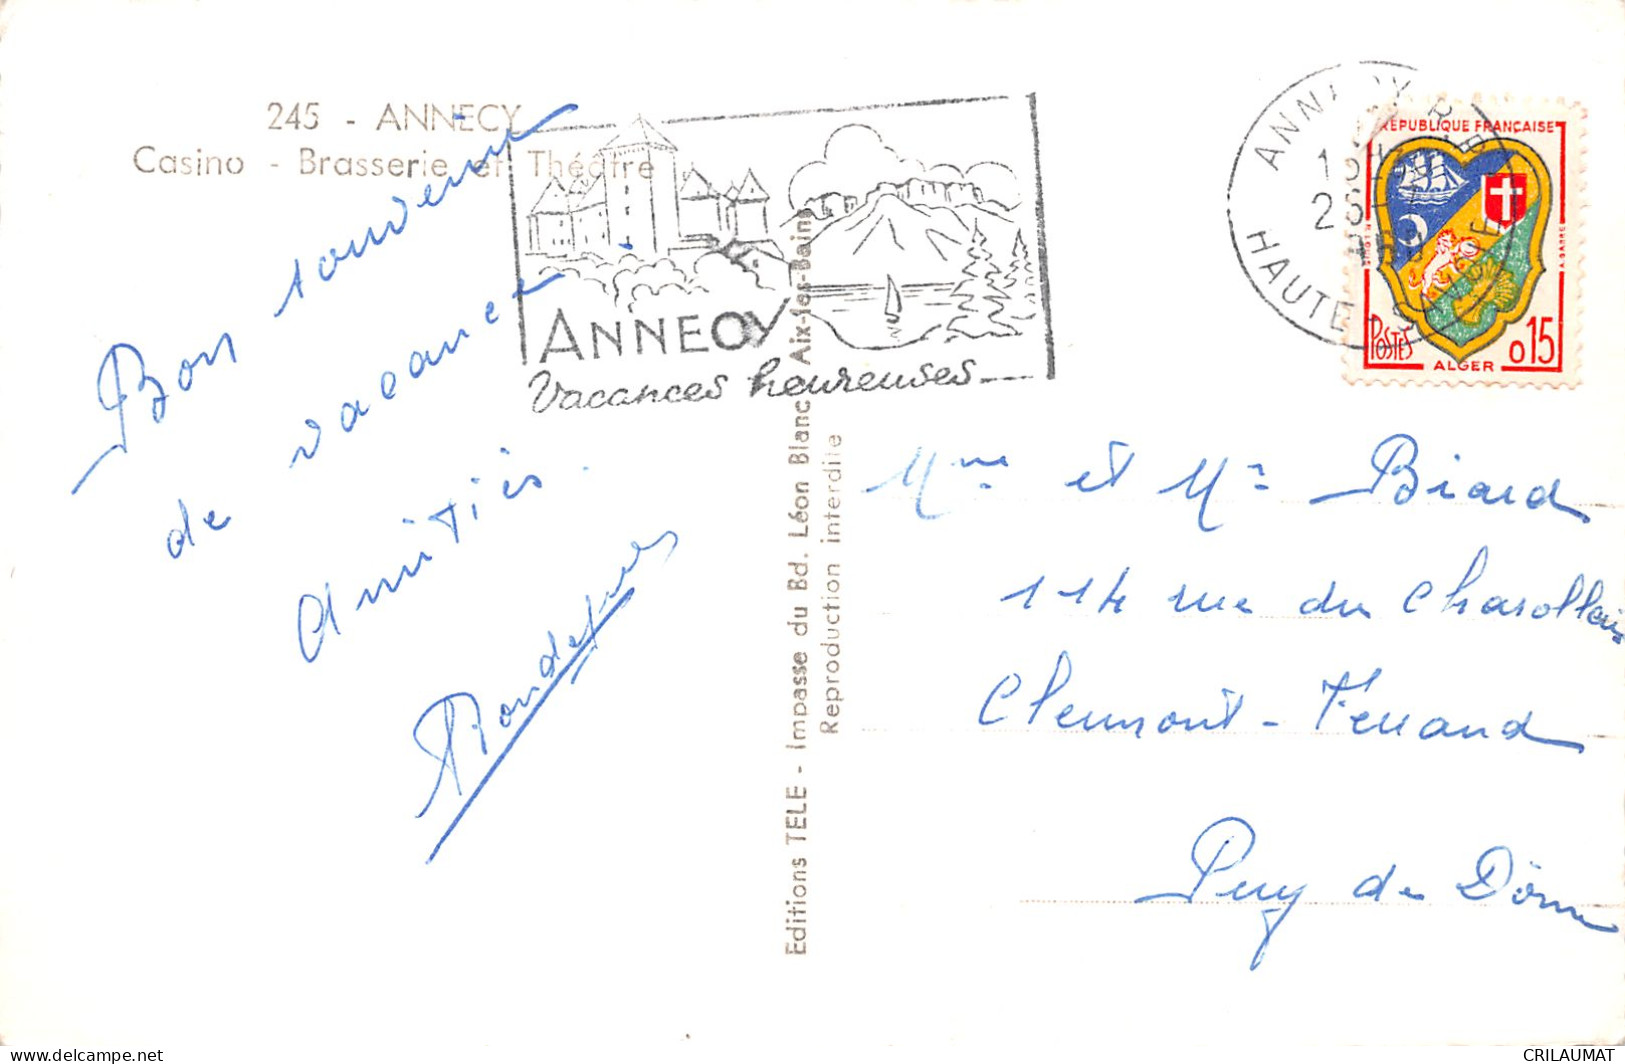 245 - ANNECY
Casino - Brasserie et Théâtre
Bon souvenir
de vacances
Amitiés.
ANNECY
Vacances heureuses...
ANNECY R.P.
HAUTE-SAVOIE
REPUBLIQUE FRANÇAISE
POSTES
0,15
ALGER
Editions TELE - Impasse du Bd. Léon Blanc Aix-les-Bains
Reproduction interdite
Mme et Mr Biard
114 rue du Charollais
Clermont-Ferrand
Puy de Dôme
CRILAUMAT